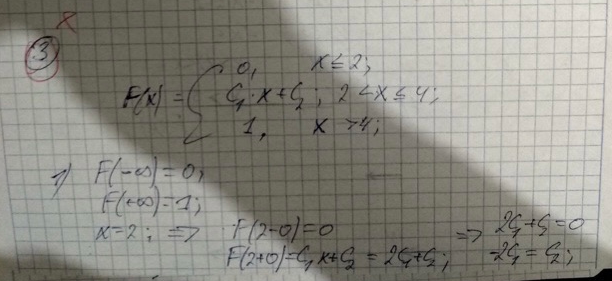 3
F(x) = { 0, x ≤ 2;
C₁·x+C₂; 2 < x ≤ 4;
1, x > 4;
1) F(-∞) = 0;
F(+∞) = 1;
x=2; => F(2-0)=0 => 2C₁+C₂=0
F(2+0)=C₁x+C₂ = 2C₁+C₂; -2C₁ = C₂;